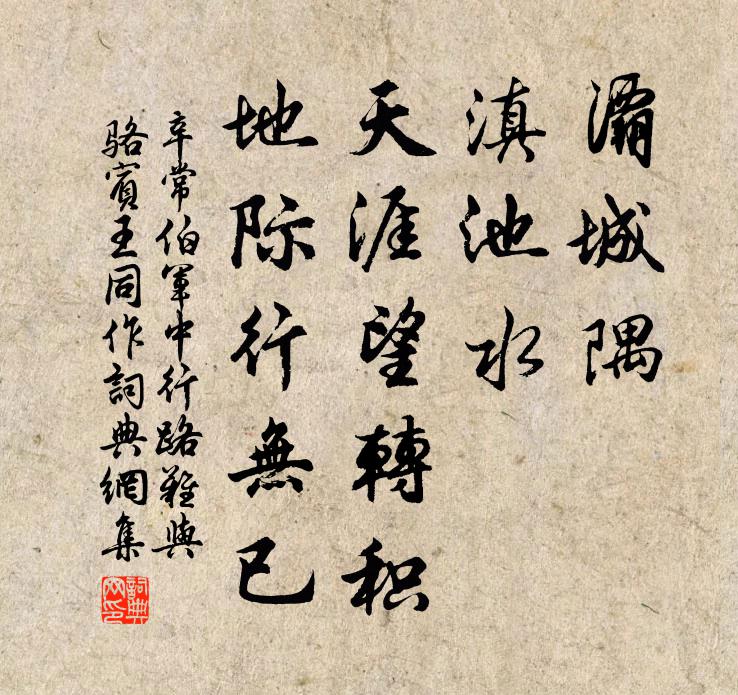 灞城隅
滇池水
天涯望轉积
地际行無已
辛常伯軍中行路難與
駱賓王同作詞典網集
詞典
网印